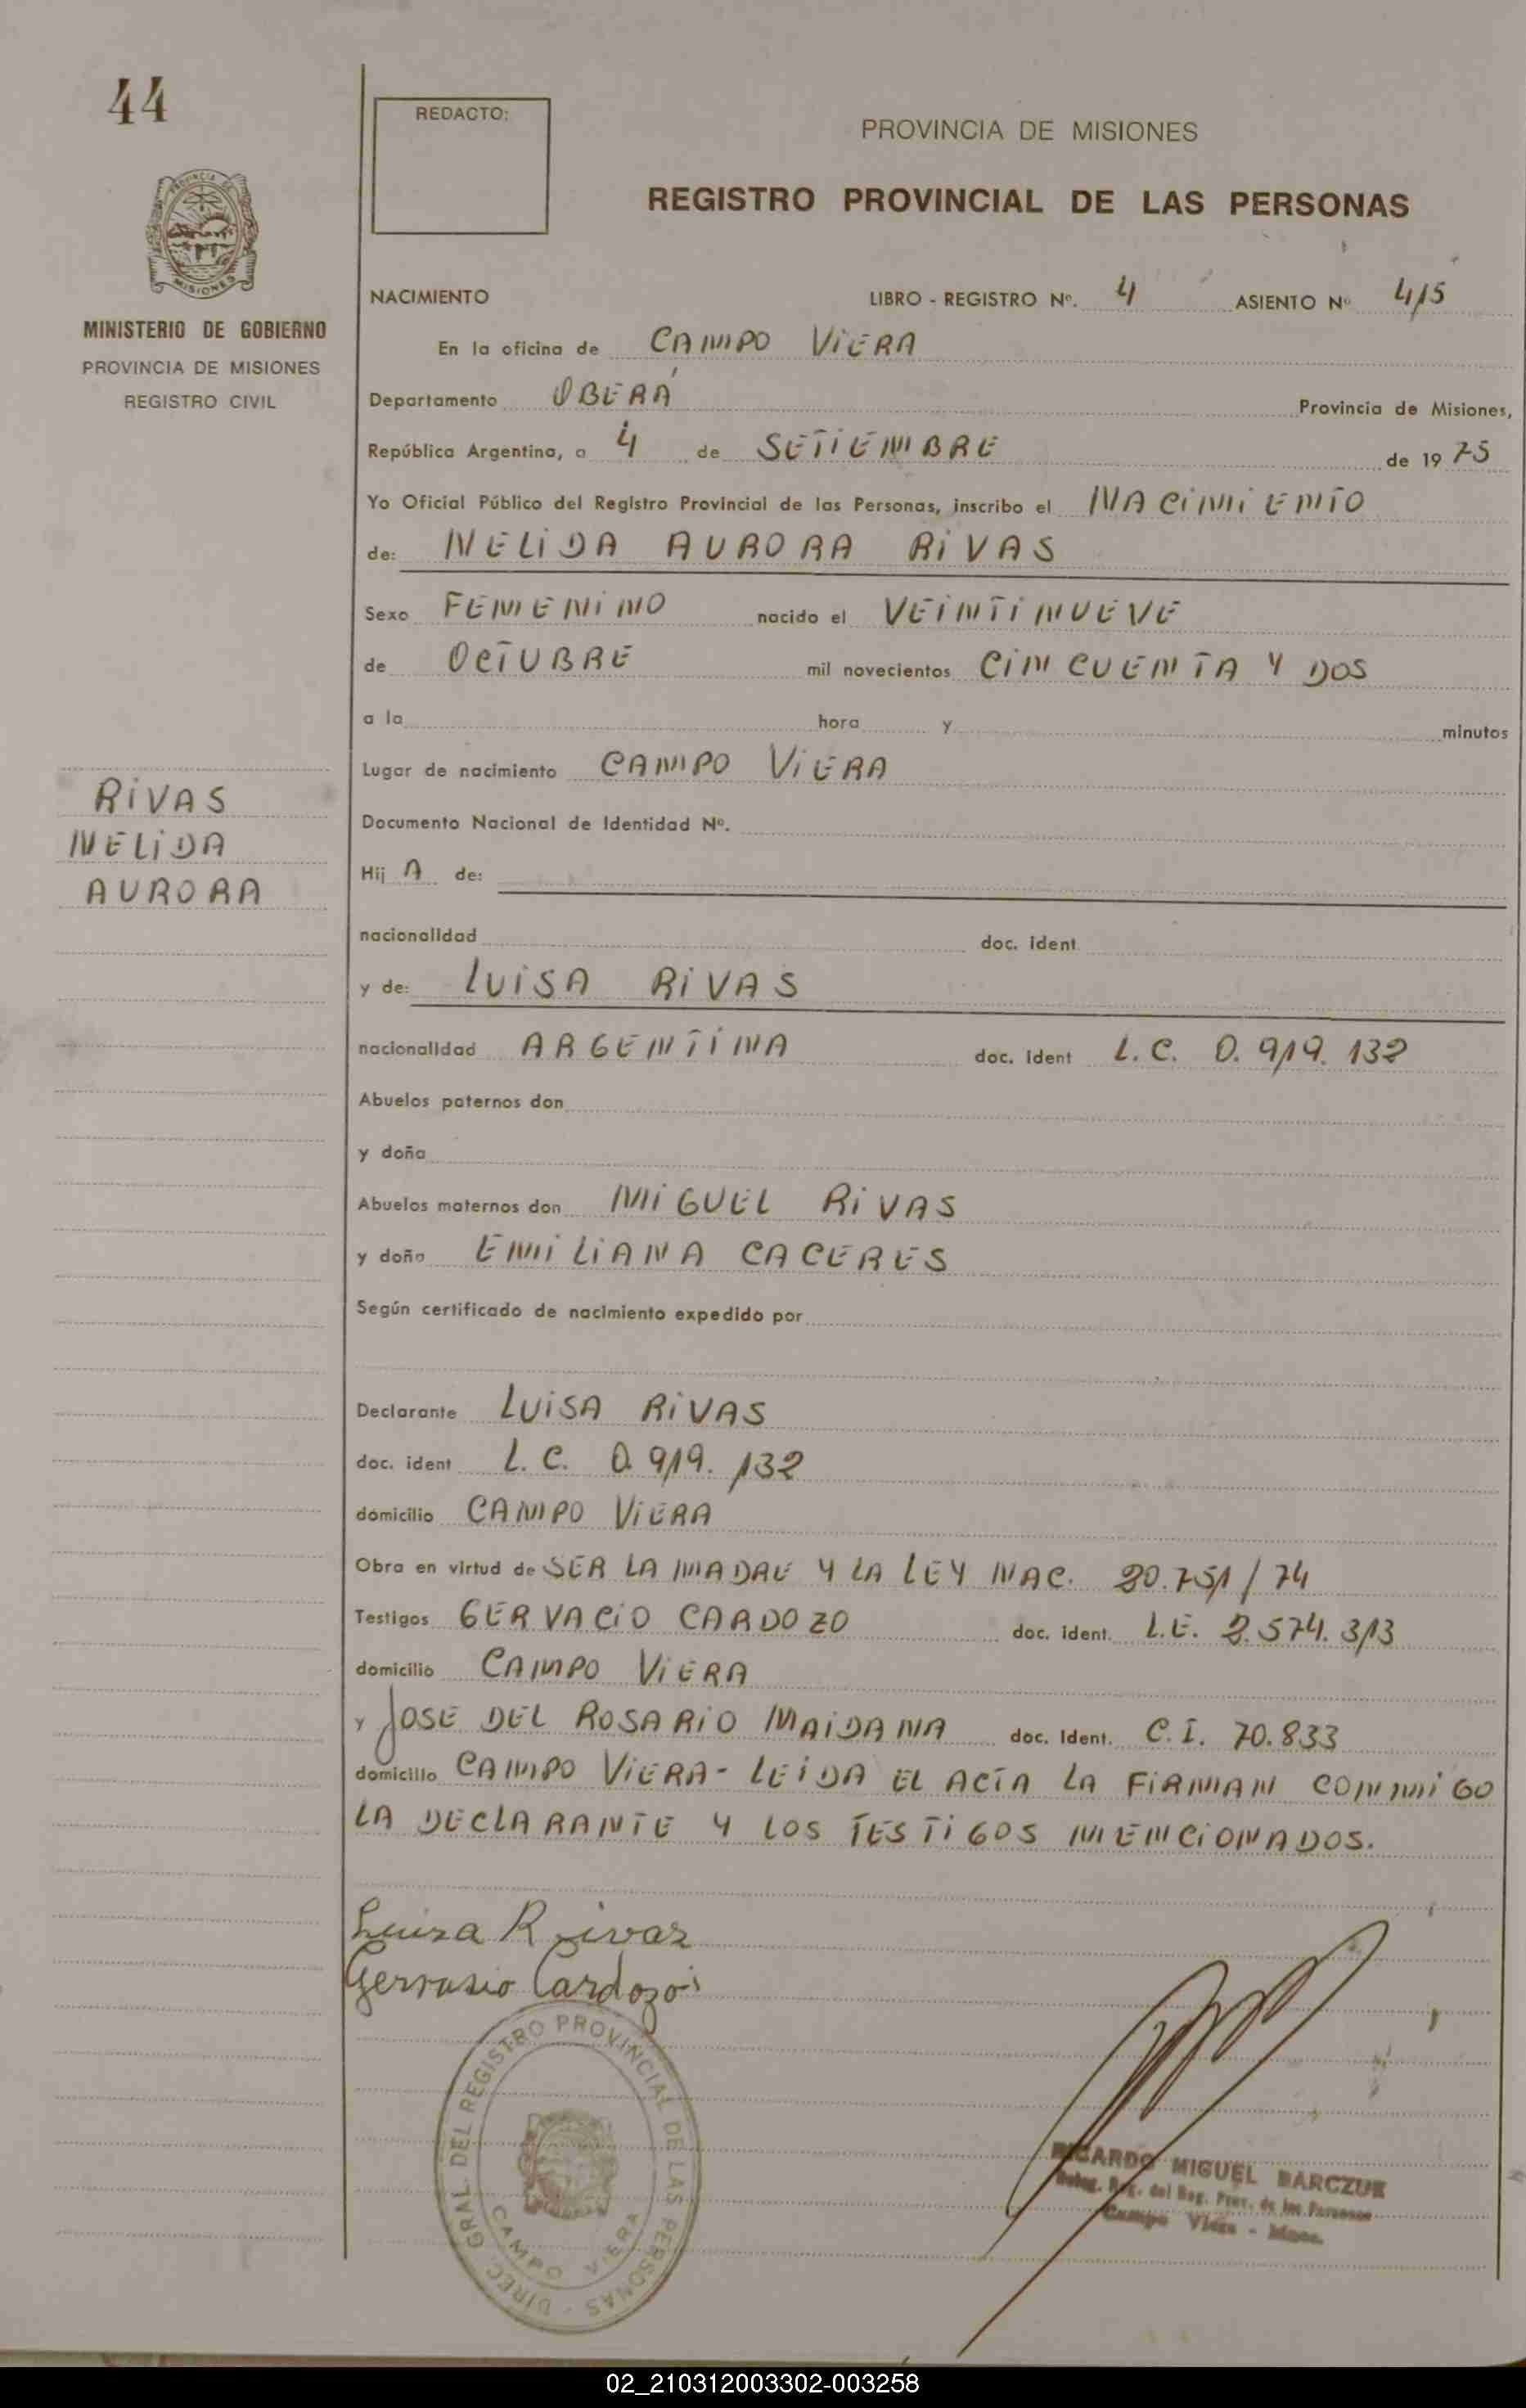 44
REDACTO:
PROVINCIA DE MISIONES
REGISTRO PROVINCIAL DE LAS PERSONAS
PROVINCIA DE
MISIONES
MINISTERIO DE GOBIERNO
PROVINCIA DE MISIONES
REGISTRO CIVIL
NACIMIENTO LIBRO - REGISTRO Nº. 4 ASIENTO Nº 415
En la oficina de CAMPO VIERA
Departamento OBERÁ Provincia de Misiones,
República Argentina, a 4 de SETIEMBRE de 1975
Yo Oficial Público del Registro Provincial de las Personas, inscribo el NACIMIENTO
de: NELIDA AURORA RIVAS
Sexo FEMENINO nacido el VEINTINUEVE
de OCTUBRE mil novecientos CINCUENTA Y DOS
a la hora y minutos
Lugar de nacimiento CAMPO VIERA
RIVAS
NELIDA
AURORA
Documento Nacional de Identidad Nº.
Hij A de:
nacionalidad doc. ident
y de: LUISA RIVAS
nacionalidad ARGENTINA doc. ident L.C. 0.919.132
Abuelos paternos don
y doña
Abuelos maternos don MIGUEL RIVAS
y doña EMILIANA CACERES
Según certificado de nacimiento expedido por
Declarante LUISA RIVAS
doc. ident L.C. 0.919.132
domicilio CAMPO VIERA
Obra en virtud de SER LA MADRE Y LA LEY NAC. 20.751/74
Testigos GERVACIO CARDOZO doc. ident. L.E. 2.574.313
domicilio CAMPO VIERA
y JOSE DEL ROSARIO MAIDANA doc. Ident. C.I. 70.833
domicilio CAMPO VIERA- LEIDA EL ACTA LA FIRMAN CONMIGO
LA DECLARANTE Y LOS TESTIGOS MENCIONADOS.
Luisa Rivas
Gervasio Cardozo
DIREC. GRAL. DEL REGISTRO PROVINCIAL DE LAS PERSONAS -
CAMPO VIERA
RICARDO MIGUEL BARCZUK
Deleg. Reg. del Reg. Prov. de las Personas
Campo Viera - Mnes.
02_210312003302-003258